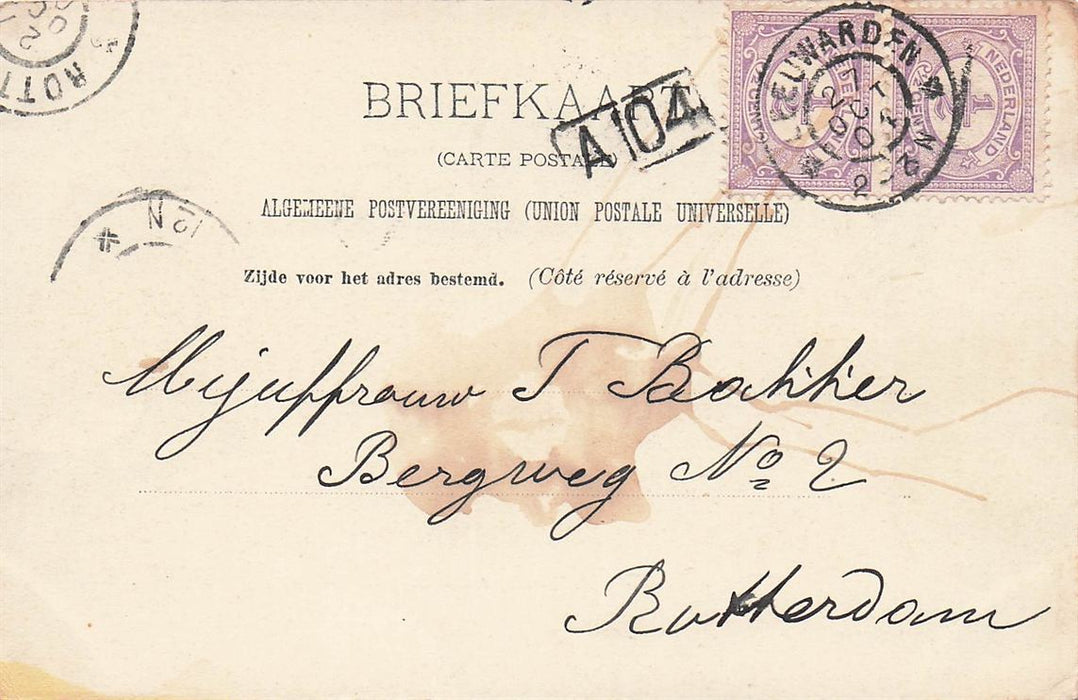 ROTT
BRIEFKAART
(CARTE POSTALE)
ALGEMEENE POSTVEREENIGING (UNION POSTALE UNIVERSELLE)
Zijde voor het adres bestemd. (Côté réservé à l'adresse)
A 104
LEEUWARDEN
NEDERLAND
½ CENT
12 N
Mejuffrouw T Bakker
Bergweg No 2
Rotterdam